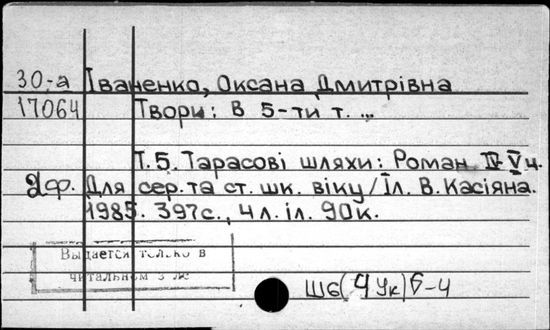 30-а Іваненко, Оксана Дмитрівна
17064 Твори: В 5-ти т. ...
Т. 5. Тарасові шляхи: Роман. IV-V ч.
2ф. Для сер. та ст. шк. віку / Іл. В. Касіяна.
1985. 397 с., 4 л. іл. 90к.
Выдается только в
читальном з ле
Ш6(4Ук)6-4